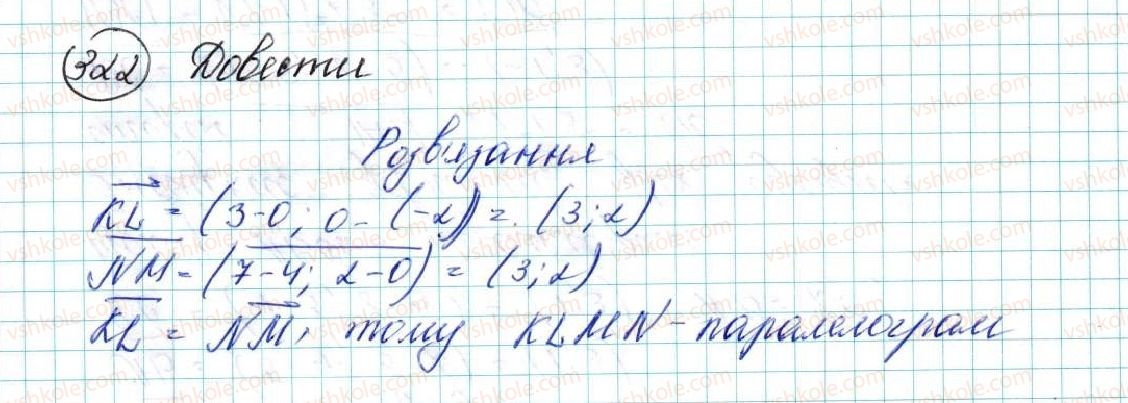 322 Довести
Розв'язання
KL = (3-0; 0-(-2)) = (3; 2)
NM = (7-4; 2-0) = (3; 2)
KL = NM, тому KLMN - паралелограм
vshkole.com